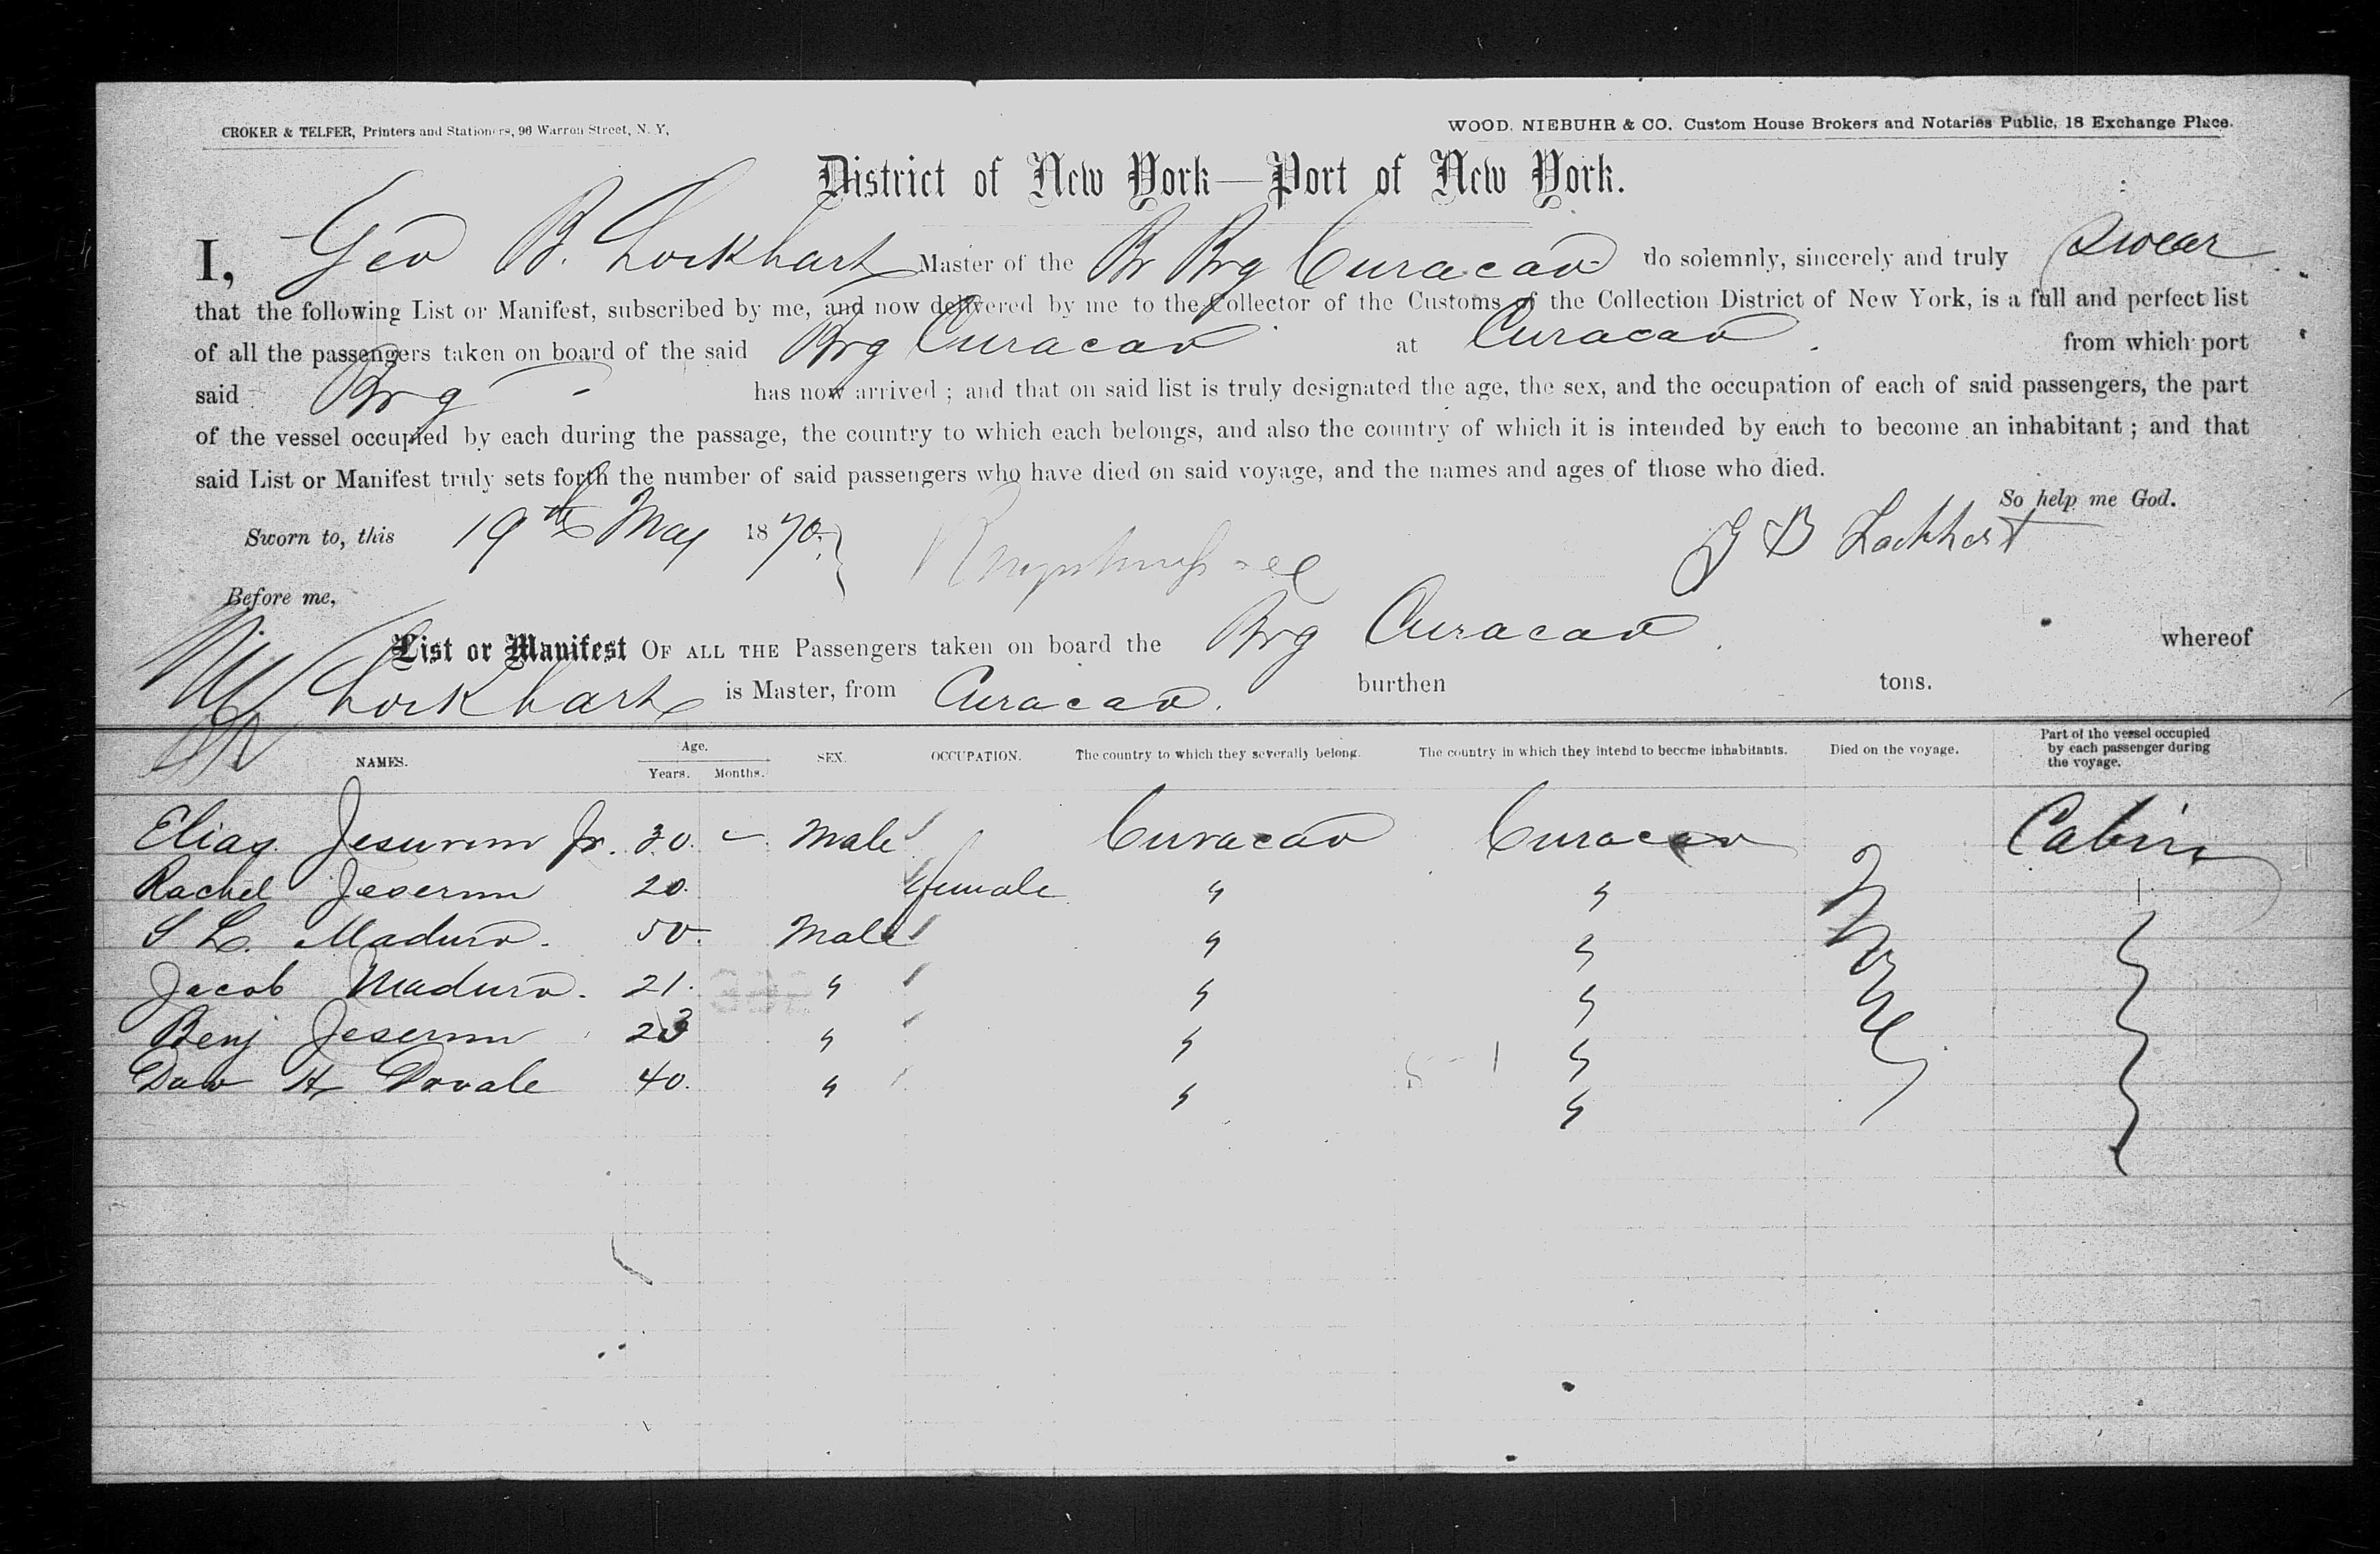 CROKER & TELFER, Printers and Stationers, 96 Warren Street, N. Y,
WOOD, NIEBUHR & CO. Custom House Brokers and Notaries Public, 18 Exchange Place.
District of New York—Port of New York.
I, Geo B. Lockhart Master of the Br Brg Curacao do solemnly, sincerely and truly swear
that the following List or Manifest, subscribed by me, and now delivered by me to the Collector of the Customs of the Collection District of New York, is a full and perfect list
of all the passengers taken on board of the said Brg Curacao at Curacao from which port
said Brg has now arrived ; and that on said list is truly designated the age, the sex, and the occupation of each of said passengers, the part
of the vessel occupied by each during the passage, the country to which each belongs, and also the country of which it is intended by each to become an inhabitant ; and that
said List or Manifest truly sets forth the number of said passengers who have died on said voyage, and the names and ages of those who died.
So help me God.
Sworn to, this 19th May 1870. G B Lockhart
Before me,
List or Manifest OF ALL THE Passengers taken on board the Brg Curacao. whereof
Lockhart is Master, from Curacao. burthen tons.
NAMES. Age. Years. Months. SEX. OCCUPATION. The country to which they severally belong. The country in which they intend to become inhabitants. Died on the voyage. Part of the vessel occupied by each passenger during the voyage.
Elias Jesurun Jr. 30. – Male Curacao Curacao None Cabin
Rachel Jeserun 20. female " "
S L. Maduro. 50. Male " "
Jacob Maduro. 21. " " "
Benj Jeserun 23 " " "
Dav H Dovale 40. " " "